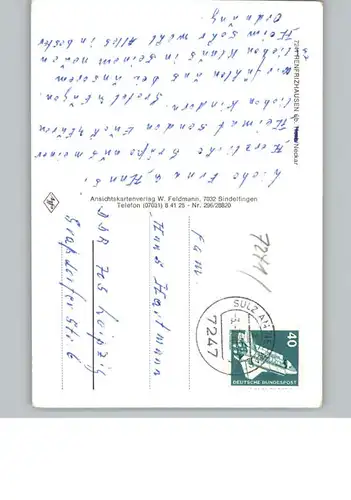 7241 RENFRIZHAUSEN üb. Horb/Neckar
Liebe Erna u. Hans!
Herzliche Grüße aus meiner
Heimat senden Euch Ihren
lieben Kindern.
Wir fühlen uns bei unserem
lieben Klaus in seinem neuen
Heim sehr wohl Alles in bester
Ordnung.
Ansichtskartenverlag W. Feldmann, 7032 Sindelfingen
Telefon (07031) 8 41 25 - Nr. 296/28820
7241/
Fam.
Hans Hartmann
DDR 703 Leipzig
Str. 6
SULZ AM
7247
40
DEUTSCHE BUNDESPOST